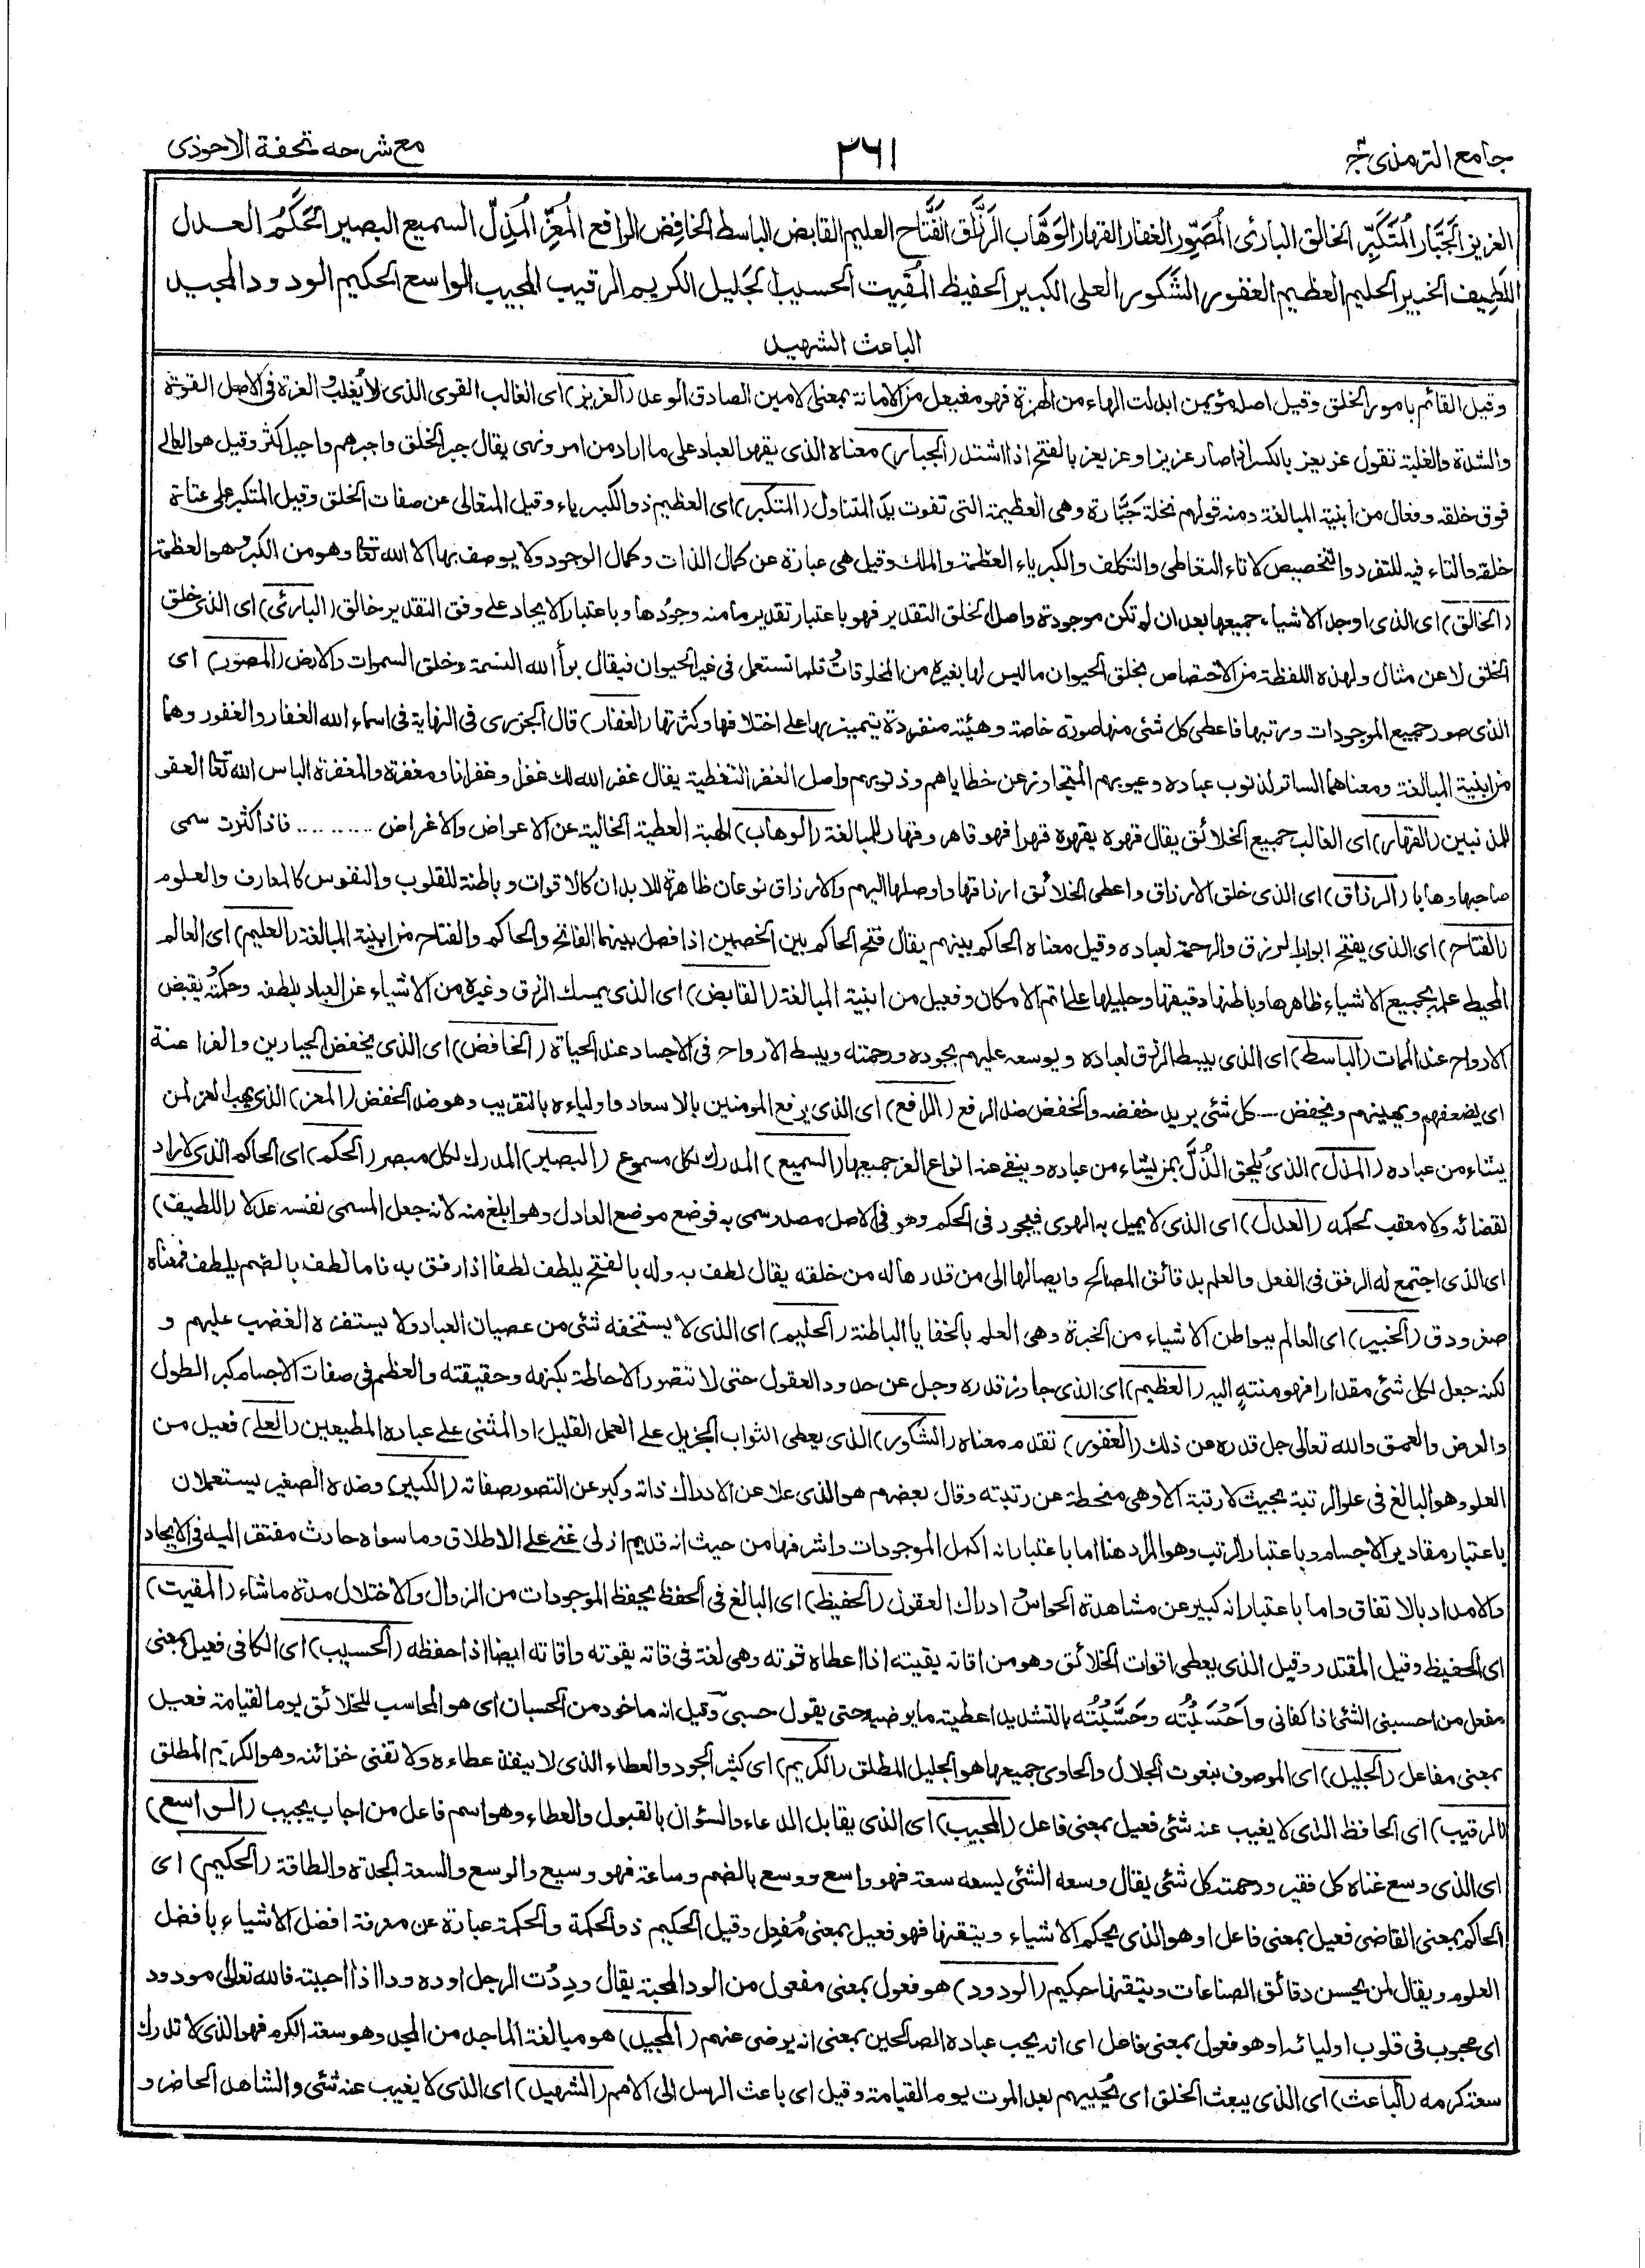 جامع الترمذی ج۴
٣٦١
مع شرحه تحفة الاحوذی
العزیز الجَبَّار المُتَکَبِّر الخالق البارئ المُصَوِّر الغفار القهار الوَهَّاب الرَزَّاق الفَتَّاح العلیم القابض الباسط الخافِض الرافع المُعِزّ المُذِلّ السمیع البصیر الحَکَمُ العدل
اللَطِیف الخبیر الحلیم العظیم الغفور الشَکور العلی الکبیر الحفیظ المُقِیت الحسیب الجَلیل الکریم الرقیب المجیب الواسع الحکیم الودود المجید
الباعث الشهید
وقیل القائم بامور الخلق وقیل اصله مؤیمن ابدلت الهاء من الهمزة فهو مفیعل من الامانة بمعنی الامین الصادق الوعد (العزیز) ای الغالب القوی الذی لا یُغلب والعزة فی الاصل القوة
والشدة والغلبة تقول عز یعِز بالکسر اذا صار عزیزا وعز یعَز بالفتح اذا اشتد (الجبار) معناه الذی یقهر العباد علی ما اراد من امر ونهی یقال جبر الخلق واجبرهم واجبر اکثر وقیل هو العالی
فوق خلقه وفعال من ابنیة المبالغة ومنه قولهم نخلة جَبَّارة وهی العظیمة التی تفوت ید المتناول (المتکبر) ای العظیم ذو الکبریاء وقیل المتعالی عن صفات الخلق وقیل المتکبر علی عتاة
خلقه والتاء فیه للتفرد والتخصیص لا تاء التعاطی والتکلف والکبریاء العظمة والملک وقیل هی عبارة عن کمال الذات وکمال الوجود ولا یوصف بها الا الله تعا وهو من الکبر وهو العظمة
(الخالق) ای الذی اوجد الاشیاء جمیعها بعد ان لم تکن موجودة واصل الخلق التقدیر فهو باعتبار تقدیر ما منه وجودها وباعتبار الایجاد علی وفق التقدیر خالق (البارئ) ای الذی خلق
الخلق لا عن مثال ولهذه اللفظة من الاختصاص بخلق الحیوان ما لیس لها بغیره من المخلوقات وقلما تستعمل فی غیر الحیوان فیقال برأ الله النسمة وخلق السموات والارض (المصور) ای
الذی صور جمیع الموجودات ورتبها فاعطی کل شئ منها صورة خاصة وهیئة منفردة یتمیز بها علی اختلافها وکثرتها (الغفار) قال الجزری فی النهایة فی اسماء الله الغفار والغفور وهما
من ابنیة المبالغة ومعناهما الساتر لذنوب عباده وعیوبهم المتجاوز عن خطایاهم وذنوبهم واصل الغفر التغطیة یقال غفر الله لک غفرا وغفرانا ومغفرة والمغفرة الباس الله تعا العفو
للمذنبین (القهار) ای الغالب جمیع الخلائق یقال قهره یقهره قهرا فهو قاهر وقهار للمبالغة (الوهاب) الهبة العطیة الخالیة عن الاعواض والاغراض ......... فاذا کثرت سمی
صاحبها وهابا (الرزاق) ای الذی خلق الارزاق واعطی الخلائق ارزاقها واوصلها الیهم والارزاق نوعان ظاهرة للابدان کالاقوات وباطنة للقلوب والنفوس کالمعارف والعلوم
(الفتاح) ای الذی یفتح ابواب الرزق والرحمة لعباده وقیل معناه الحاکم بینهم یقال فتح الحاکم بین الخصمین اذا فصل بینهما الفاتح والحاکم والفتاح من ابنیة المبالغة (العلیم) ای العالم
المحیط علمه بجمیع الاشیاء ظاهرها وباطنها دقیقها وجلیلها علی اتم الامکان وفعیل من ابنیة المبالغة (القابض) ای الذی یمسک الرزق وغیره من الاشیاء عن العباد بلطفه وحکمته یقبض
الارواح عند الممات (الباسط) ای الذی یبسط الرزق لعباده ویوسعه علیهم بجوده ورحمته ویبسط الارواح فی الاجساد عند الحیاة (الخافض) ای الذی یخفض الجبارین والفراعنة
ای یضعفهم ویهینهم ویخفض ... کل شئ یرید خفضه والخفض ضد الرفع (الرافع) ای الذی یرفع المومنین بالاسعاد واولیاءه بالتقریب وهو ضد الخفض (المعز) الذی یهب العز لمن
یشاء من عباده (المذل) الذی یُلحق الذُلَّ بمن یشاء من عباده وینفی عنه انواع العز جمیعها (السمیع) المدرک لکل مسموع (البصیر) المدرک لکل مبصر (الحکم) ای الحاکم الذی لا راد
لقضائه ولا معقب لحکمه (العدل) ای الذی لا یمیل به الهوی فیجور فی الحکم وهو فی الاصل مصدر سمی به فوضع موضع العادل وهو ابلغ منه لانه جعل المسمی نفسه عدلا (اللطیف)
ای الذی اجتمع له الرفق فی الفعل والعلم بدقائق المصالح وایصالها الی من قدرها له من خلقه یقال لطف به وله بالفتح یلطف لطفا اذا رفق به فاما لطف بالضم یلطف فمعناه
صغر ودق (الخبیر) ای العالم ببواطن الاشیاء من الخبرة وهی العلم بالخفایا الباطنة (الحلیم) ای الذی لا یستخفه شئ من عصیان العباد ولا یستفزه الغضب علیهم و
لکنه جعل لکل شئ مقدارا فهو منتهٍ الیه (العظیم) ای الذی جاوز قدره وجل عن حدود العقول حتی لا تتصور الاحاطة بکنهه وحقیقته والعظم فی صفات الاجسام کبر الطول
والعرض والعمق والله تعالی جل قدره عن ذلک (الغفور) تقدم معناه (الشکور) الذی یعطی الثواب الجزیل علی العمل القلیل او المثنی علی عباده المطیعین (العلی) فعیل من
العلو وهو البالغ فی علو الرتبة بحیث لا رتبة الا وهی منحطة عن رتبته وقال بعضهم هو الذی علا عن الادراک ذاته وکبر عن التصور صفاته (الکبیر) وضده الصغیر یستعملان
باعتبار مقادیر الاجسام وباعتبار الرتب وهو المراد هنا اما باعتبار انه اکمل الموجودات واشرفها من حیث انه قدیم ازلی غنی علی الاطلاق وما سواه حادث مفتقر الیه فی الایجاد
والامداد بالاتفاق واما باعتبار انه کبیر عن مشاهدة الحواس وادراک العقول (الحفیظ) ای البالغ فی الحفظ یحفظ الموجودات من الزوال والاختلال مدة ما شاء (المقیت)
ای الحفیظ وقیل المقتدر وقیل الذی یعطی اقوات الخلائق وهو من اقاته یقیته اذا اعطاه قوته وهی لغة فی قاته یقوته واقاته ایضا اذا حفظه (الحسیب) ای الکافی فعیل بمعنی
مفعل من احسبنی الشئ اذا کفانی واَحْسَبْتُه وحَسَّبْتُه بالتشدید اعطیته ما یرضیه حتی یقول حسبی وقیل انه ماخوذ من الحسبان ای هو المحاسب للخلائق یوم القیامة فعیل
بمعنی مفاعل (الجلیل) ای الموصوف بنعوت الجلال والحاوی جمیعها هو الجلیل المطلق (الکریم) ای کثیر الجود والعطاء الذی لا ینفد عطاءه ولا تفنی خزائنه وهو الکریم المطلق
(الرقیب) ای الحافظ الذی لا یغیب عنه شئ فعیل بمعنی فاعل (المجیب) ای الذی یقابل الدعاء والسؤال بالقبول والعطاء وهو اسم فاعل من اجاب یجیب (الواسع)
ای الذی وسع غناه کل فقیر ورحمته کل شئ یقال وسعه الشئ یسعه سعة فهو واسع ووسع بالضم وساعة فهو وسیع والوسع والسعة الجدة والطاقة (الحکیم) ای
الحاکم بمعنی القاضی فعیل بمعنی فاعل او هو الذی یحکم الاشیاء ویتقنها فهو فعیل بمعنی مُفعِل وقیل الحکیم ذو الحکمة والحکمة عبارة عن معرفة افضل الاشیاء بافضل
العلوم ویقال لمن یحسن دقائق الصناعات ویتقنها حکیم (الودود) هو فعول بمعنی مفعول من الود المحبة یقال ودِدْت الرجل اوده ودا اذا احببته فالله تعالی مودود
ای محبوب فی قلوب اولیائه او هو فعول بمعنی فاعل ای انه یحب عباده الصالحین بمعنی انه یرضی عنهم (المجید) هو مبالغة الماجد من المجد وهو سعة الکرم فهو الذی لا تدرک
سعة کرمه (الباعث) ای الذی یبعث الخلق ای یُحییهم بعد الموت یوم القیامة وقیل ای باعث الرسل الی الامم (الشهید) ای الذی لا یغیب عنه شئ والشاهد الحاضر و